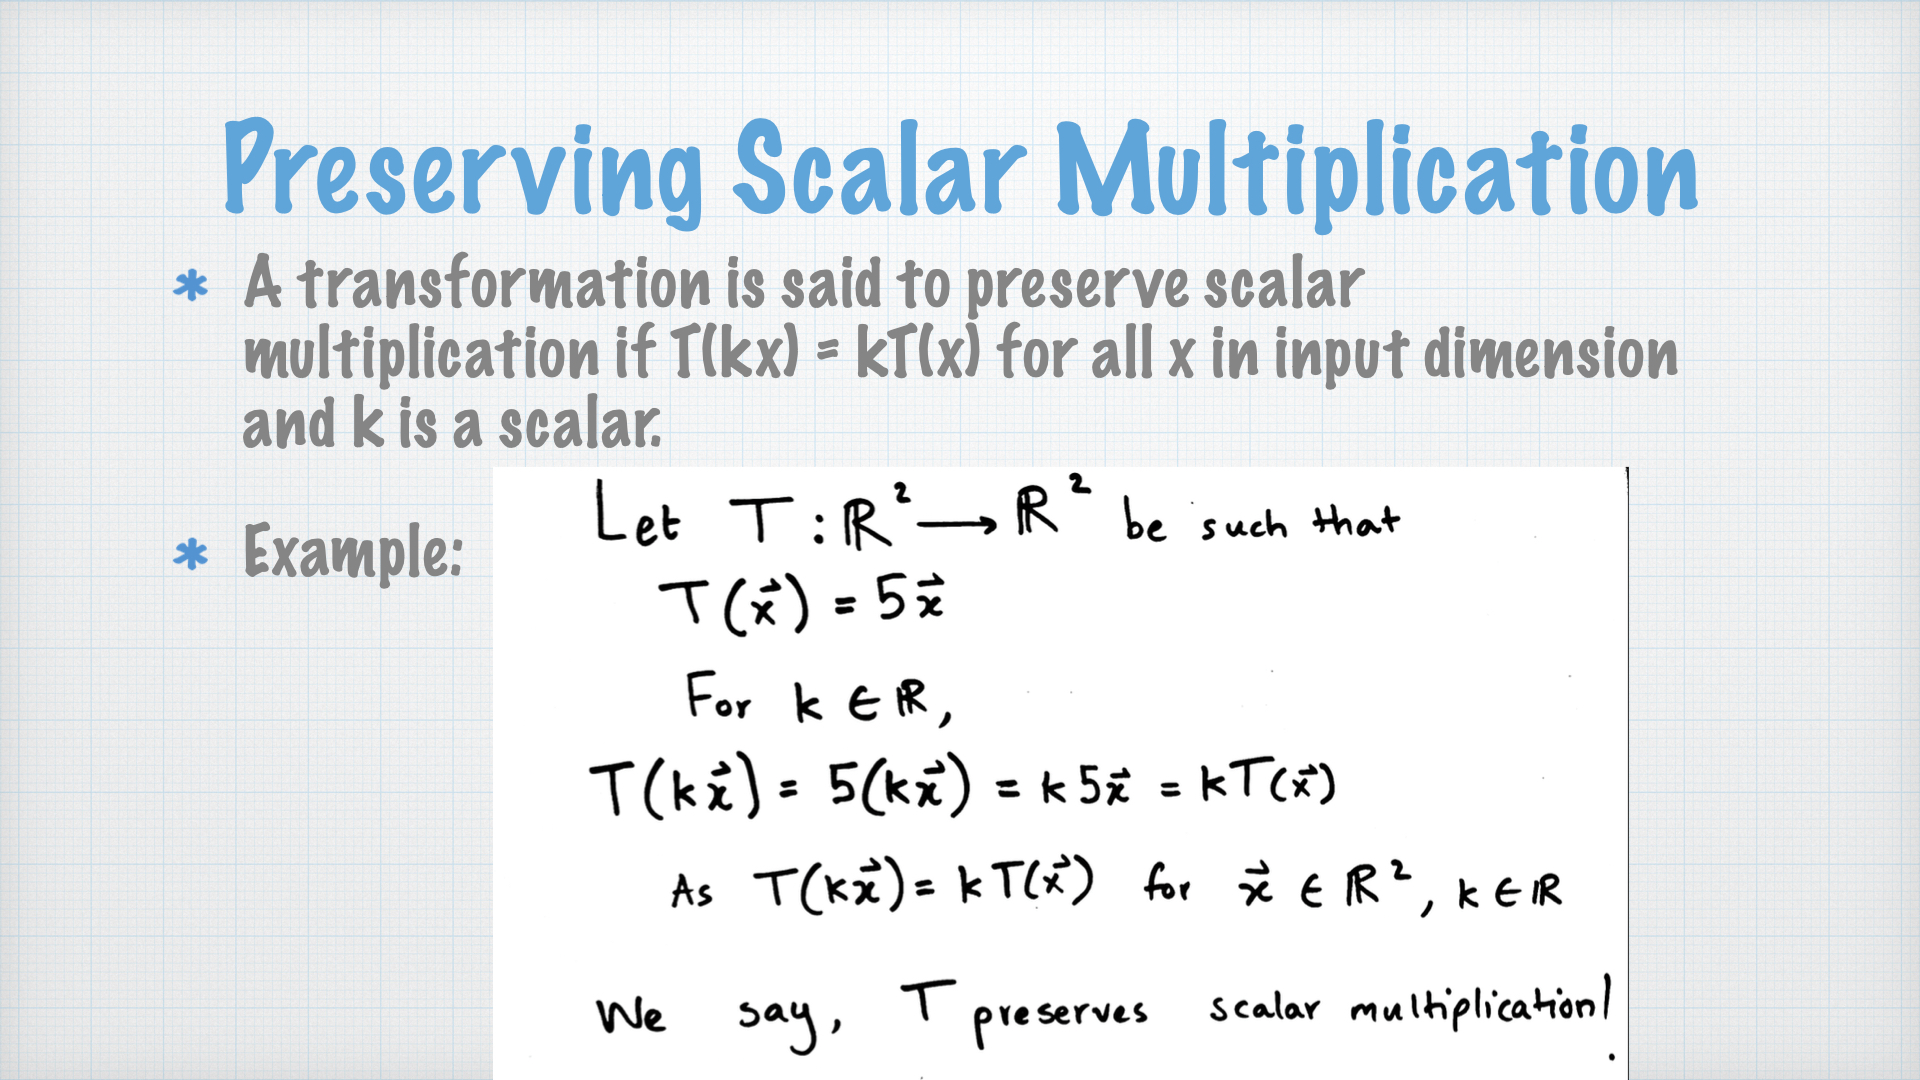 Preserving Scalar Multiplication
* A transformation is said to preserve scalar
multiplication if T(kx) = kT(x) for all x in input dimension
and k is a scalar.
* Example:
Let T : ℝ² → ℝ² be such that
T(x⃗) = 5x⃗
For k ∈ ℝ,
T(kx⃗) = 5(kx⃗) = k5x⃗ = kT(x⃗)
As T(kx⃗) = kT(x⃗) for x⃗ ∈ ℝ², k ∈ ℝ
We say, T preserves scalar multiplication!